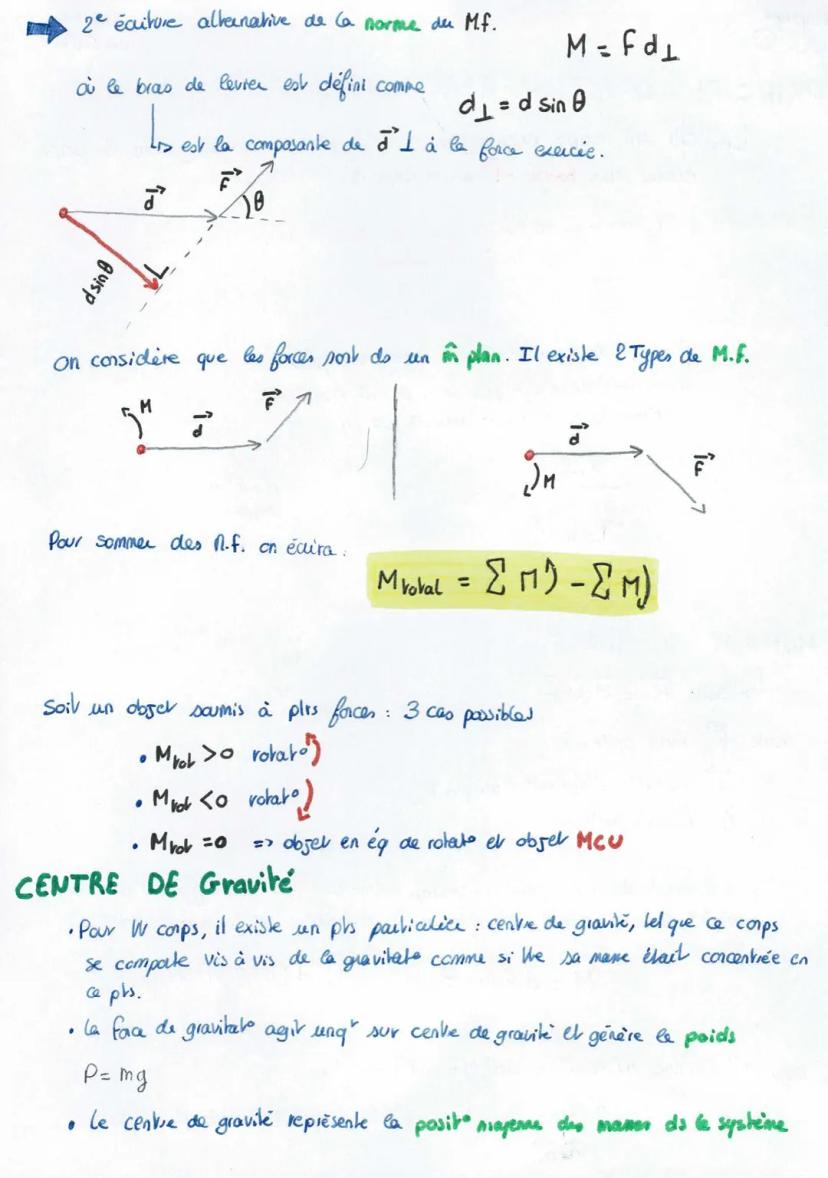 2e écriture alternative de la norme du M.f.
M = F d⊥
où le bras de levier est défini comme
d⊥ = d sin θ
↳ est la composante de d⃗ ⊥ à la force exercée.
d⃗
F⃗
θ
d sin θ
On considère que les forces sont ds un m̂ plan. Il existe 2 Types de M.F.
M
d⃗
F⃗
d⃗
M
F⃗
Pour sommer des M.f. on écrira :
M total = Σ M↺ - Σ M↻
Soit un objet soumis à plrs forces : 3 cas possibles
• Mtot > 0 rotat° ↺
• Mtot < 0 rotat° ↻
• Mtot = 0 => objet en éq de rotat° et objet MCU
CENTRE DE Gravité
• Pour tt corps, il existe un pts particulier : centre de gravité, tel que ce corps
se comporte vis à vis de la gravitat° comme si tte sa masse était concentrée en
ce pts.
• La force de gravitat° agit unqt sur centre de gravité et génère le poids
P = mg
• Le centre de gravité représente la posit° moyenne des masses ds le système